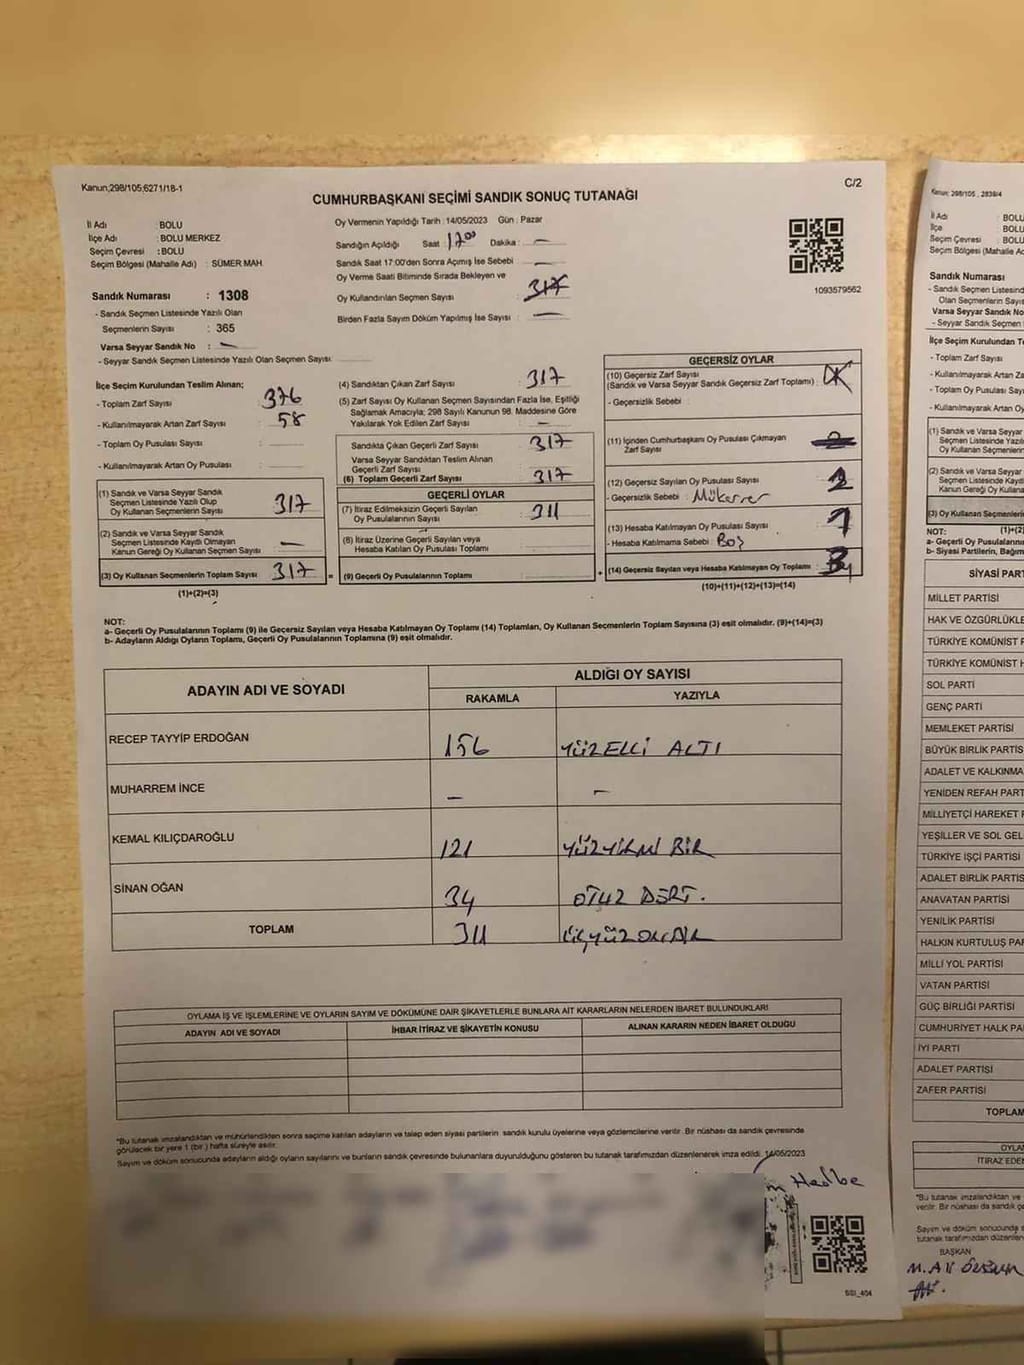 Kanun,298/105;6271/18-1
C/2
CUMHURBAŞKANI SEÇİMİ SANDIK SONUÇ TUTANAĞI
İl Adı : BOLU
İlçe Adı : BOLU MERKEZ
Seçim Çevresi : BOLU
Seçim Bölgesi (Mahalle Adı) : SÜMER MAH.
Sandık Numarası : 1308
- Sandık Seçmen Listesinde Yazılı Olan
Seçmenlerin Sayısı : 365
Varsa Seyyar Sandık No : -
- Seyyar Sandık Seçmen Listesinde Yazılı Olan Seçmen Sayısı:
Oy Vermenin Yapıldığı Tarih : 14/05/2023 Gün : Pazar
Sandığın Açıldığı Saat 17 00 Dakika : -
Sandık Saat 17:00'den Sonra Açımış İse Sebebi : -
Oy Verme Saati Bitiminde Sırada Bekleyen ve
Oy Kullandırılan Seçmen Sayısı : 317
Birden Fazla Sayım Döküm Yapılmış İse Sayısı : -
1093579562
İlçe Seçim Kurulundan Teslim Alınan;
- Toplam Zarf Sayısı : 376
- Kullanılmayarak Artan Zarf Sayısı : 58
- Toplam Oy Pusulası Sayısı :
- Kullanılmayarak Artan Oy Pusulası :
(1) Sandık ve Varsa Seyyar Sandık
Seçmen Listesinde Yazılı Olup
Oy Kullanan Seçmenlerin Sayısı 317
(2) Sandık ve Varsa Seyyar Sandık
Seçmen Listesinde Kaydı Olmayan
Kanun Gereği Oy Kullanan Seçmen Sayısı -
(3) Oy Kullanan Seçmenlerin Toplam Sayısı 317
(1)+(2)=(3)
(4) Sandıktan Çıkan Zarf Sayısı : 317
(5) Zarf Sayısı Oy Kullanan Seçmen Sayısından Fazla İse, Eşitliği
Sağlamak Amacıyla; 298 Sayılı Kanunun 98. Maddesine Göre
Yakılarak Yok Edilen Zarf Sayısı : -
Sandıkta Çıkan Geçerli Zarf Sayısı : 317
Varsa Seyyar Sandıktan Teslim Alınan
Geçerli Zarf Sayısı
(6) Toplam Geçerli Zarf Sayısı : 317
GEÇERLİ OYLAR
(7) İtiraz Edilmeksizin Geçerli Sayılan
Oy Pusulasının Sayısı : 311
(8) İtiraz Üzerine Geçerli Sayılan veya
Hesaba Katılan Oy Pusulası Toplamı
= (9) Geçerli Oy Pusulalarının Toplamı
GEÇERSİZ OYLAR
(10) Geçersiz Zarf Sayısı
(Sandık ve Varsa Seyyar Sandık Geçersiz Zarf Toplamı) :
- Geçersizlik Sebebi :
(11) İçinden Cumhurbaşkanı Oy Pusulası Çıkmayan
Zarf Sayısı :
(12) Geçersiz Sayılan Oy Pusulası Sayısı :
- Geçersizlik Sebebi : Mükerrer
(13) Hesaba Katılmayan Oy Pusulası Sayısı :
- Hesaba Katılmama Sebebi : Boş
+ (14) Geçersiz Sayılan veya Hesaba Katılmayan Oy Toplamı :
(10)+(11)+(12)+(13)=(14)
NOT:
a- Geçerli Oy Pusulalarının Toplamı (9) ile Geçersiz Sayılan veya Hesaba Katılmayan Oy Toplamı (14) Toplamları, Oy Kullanan Seçmenlerin Toplam Sayısına (3) eşit olmalıdır. (9)+(14)=(3)
b- Adayların Aldığı Oyların Toplamı, Geçerli Oy Pusulalarının Toplamına (9) eşit olmalıdır.
ADAYIN ADI VE SOYADI
ALDIĞI OY SAYISI
RAKAMLA YAZIYLA
RECEP TAYYİP ERDOĞAN 156 YÜZELLİ ALTI
MUHARREM İNCE - -
KEMAL KILIÇDAROĞLU 121 YÜZYİRMİ BİR
SİNAN OĞAN 34 OTUZ DÖRT.
TOPLAM 311
OYLAMA İŞ VE İŞLEMLERİNE VE OYLARIN SAYIM VE DÖKÜMÜNE DAİR ŞİKAYETLERLE BUNLARA AİT KARARLARIN NELERDEN İBARET BULUNDUKLARI
ADAYIN ADI VE SOYADI İHBAR İTİRAZ VE ŞİKAYETİN KONUSU ALINAN KARARIN NEDEN İBARET OLDUĞU
*Bu tutanak imzalandıktan ve mühürlendikten sonra seçime katılan adayların ve talep eden siyasi partilerin sandık kurulu üyelerine veya gözlemcilerine verilir. Bir nüshası da sandık çevresinde
görülecek bir yere 1 (bir) hafta süreyle asılır.
Sayım ve döküm sonucunda adayların aldığı oyların sayılarını ve bunların sandık çevresinde bulunanlara duyurulduğunu gösteren bu tutanak tarafımızdan düzenlenerek imza edildi. 14/05/2023
SSI_404
Kanun: 298/105 , 2839/4
İl Adı : BOLU
İlçe : BOLU
Seçim Çevresi : BOLU
Seçim Bölgesi (Mahalle Adı
Sandık Numarası
- Sandık Seçmen Listesinde
Olan Seçmenlerin Sayısı
Varsa Seyyar Sandık No
- Seyyar Sandık Seçmen
İlçe Seçim Kurulundan Te
- Toplam Zarf Sayısı
- Kullanılmayarak Artan Za
- Toplam Oy Pusulası Sayısı
- Kullanılmayarak Artan Oy
(1) Sandık ve Varsa Seyyar
Seçmen Listesinde Yazılı
Oy Kullanan Seçmenlerin
(2) Sandık ve Varsa Seyyar
Seçmen Listesinde Kaydı
Kanun Gereği Oy Kullana
(3) Oy Kullanan Seçmenlerin
(1)+(2)
NOT:
a- Geçerli Oy Pusulalarının
b- Siyasi Partilerin, Bağım
SİYASİ PART
MİLLET PARTİSİ
HAK VE ÖZGÜRLÜKLE
TÜRKİYE KOMÜNİST P
TÜRKİYE KOMÜNİST H
SOL PARTİ
GENÇ PARTİ
MEMLEKET PARTİSİ
BÜYÜK BİRLİK PARTİS
ADALET VE KALKINMA
YENİDEN REFAH PART
MİLLİYETÇİ HAREKET P
YEŞİLLER VE SOL GEL
TÜRKİYE İŞÇİ PARTİSİ
ADALET BİRLİK PARTİS
ANAVATAN PARTİSİ
YENİLİK PARTİSİ
HALKIN KURTULUŞ PAR
MİLLİ YOL PARTİSİ
VATAN PARTİSİ
GÜÇ BİRLİĞİ PARTİSİ
CUMHURİYET HALK PA
İYİ PARTİ
ADALET PARTİSİ
ZAFER PARTİSİ
TOPLAM
OYLA
İTİRAZ EDE
*Bu tutanak imzalandıktan ve
verilir. Bir nüshası da sandık çe
Sayım ve döküm sonucunda s
tutanak tarafımızdan düzenlen
BAŞKAN